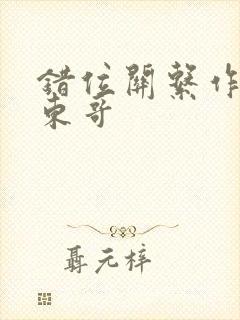 錯位關系作
東哥
聶元梓